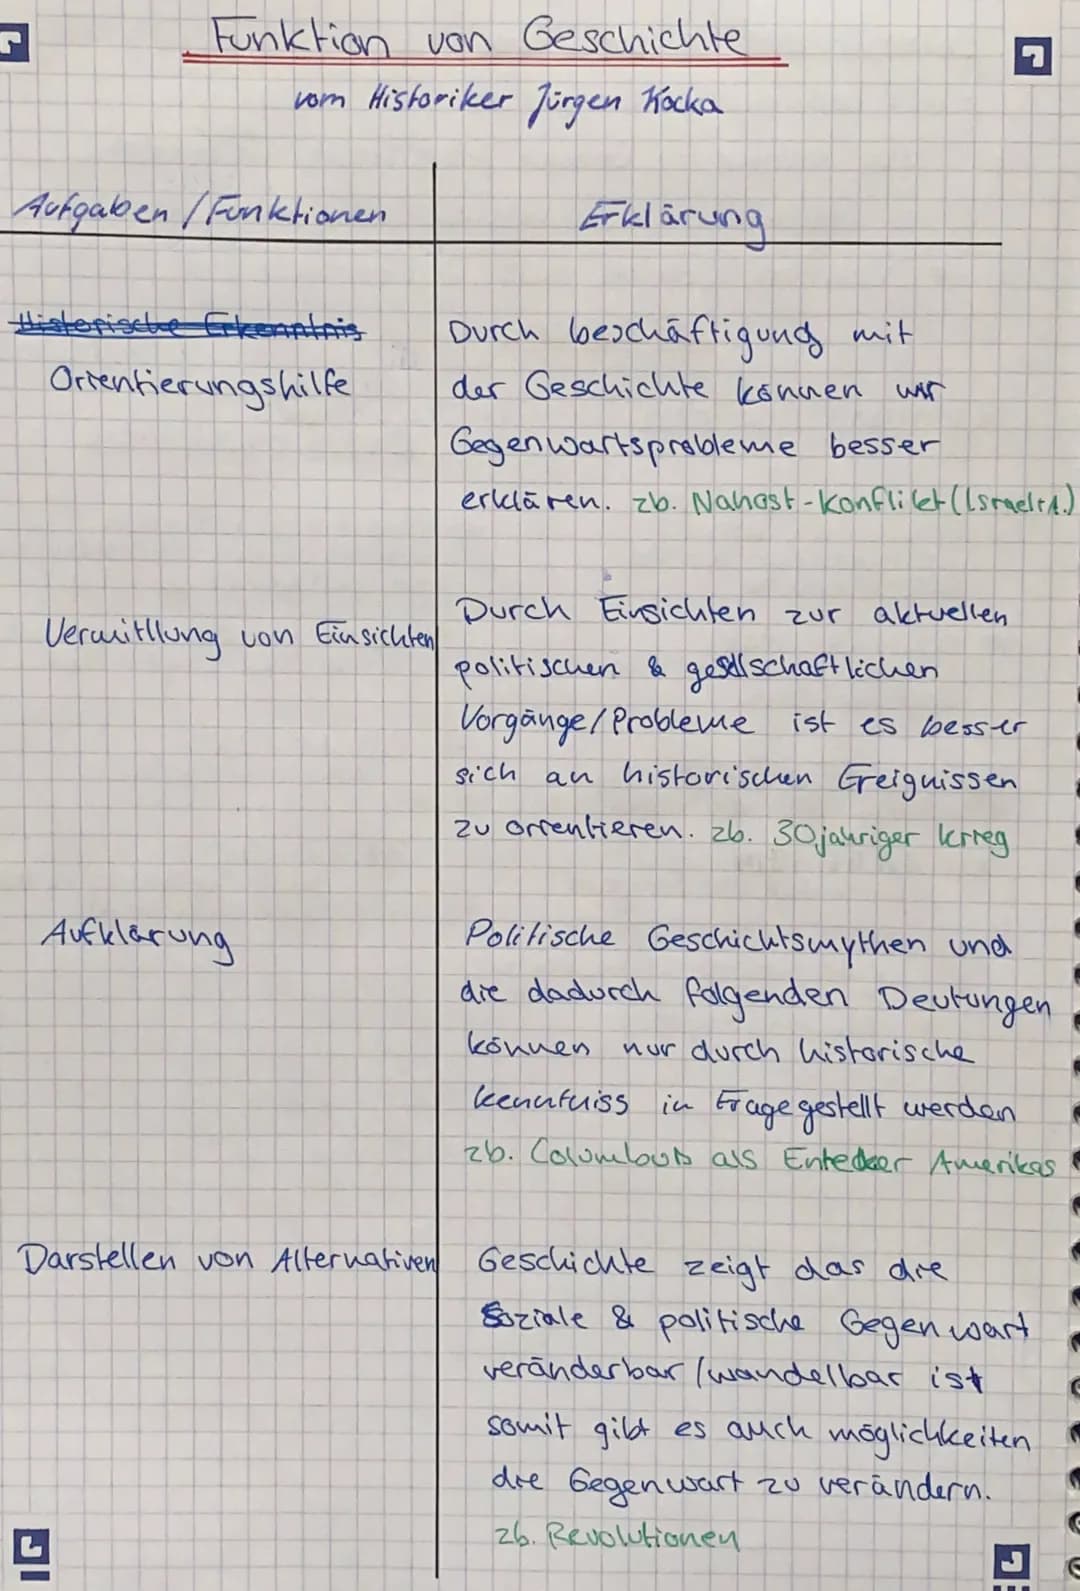 Funktion von Geschichte
vom Historiker Jürgen Kocka
Aufgaben / Funktionen
Erklärung
Historische Erkenntnis
Orientierungshilfe
Durch beschäftigung mit
der Geschichte können wir
Gegenwartsprobleme besser
erklären. zb. Nahost-Konflikt (Israel
Vermittlung von Einsichten
Durch Einsichten zur aktuellen
politischen & gesellschaftlichen
Vorgänge/Probleme ist es besser
sich an historischen Ereignissen
zu orientieren. zb. 30jähriger Krieg
Aufklärung
Politische Geschichtsmythen und
die dadurch folgenden Deutungen
können nur durch historische
kenntniss in Frage gestellt werden
zb. Columbus als Entecker Amerikas
Darstellen von Alternativen
Geschichte zeigt das die
Soziale & politische Gegenwart
veränderbar/wandelbar ist
somit gibt es auch möglichkeiten
die Gegenwart zu verändern.
zb. Revolutionen